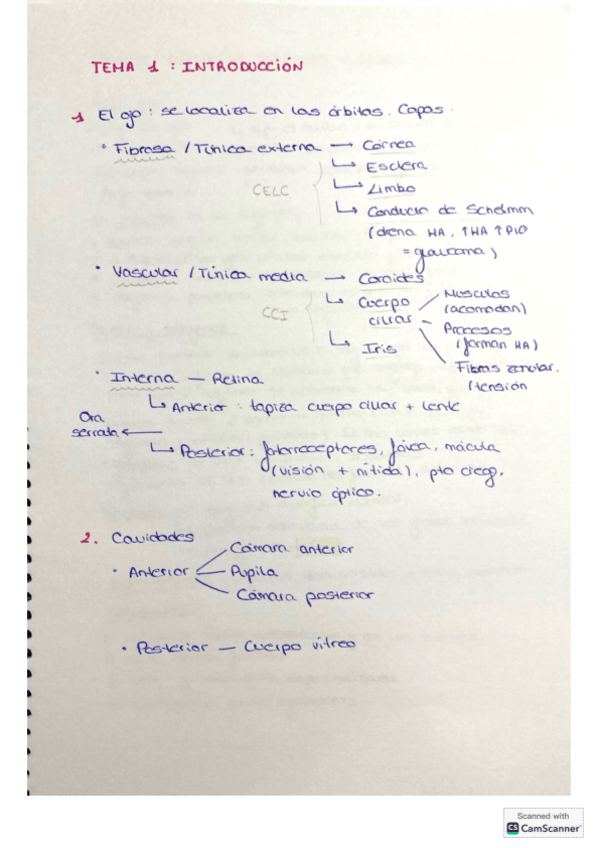 TEMA 1 : INTRODUCCIÓN
1 El ojo : se localiza en las órbitas. Capas.
· Fibrosa / Túnica externa → Córnea
↳ Esclera
CELC
↳ Limbo
↳ Conducto de Schelmm
(drena HA, ↑HA ↑PIO
= glaucoma)
· Vascular / Túnica media → Coroides
↳ Cuerpo ciliar
Músculos
(acomodan)
Procesos
(forman HA)
Fibras zonular.
(tensión
CCI
↳ Iris
· Interna — Retina
↳ Anterior : tapiza cuerpo ciliar + lente
Ora
serrata ←
↳ Posterior : fotorreceptores, fóvea, mácula
(visión + nítida), pto cieg,
nervio óptico.
2. Cavidades
· Anterior
Cámara anterior
Pupila
Cámara posterior
· Posterior — Cuerpo vítreo
Scanned with
CS CamScanner